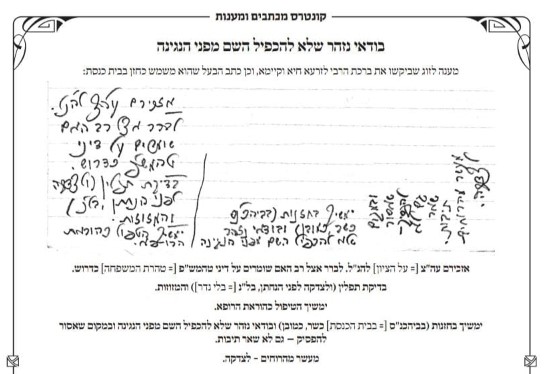 קונטרס מכתבים ומענות
בודאי נזהר שלא להכפיל השם מפני הנגינה
מענה לזוג שביקשו את ברכת הרבי לזרעא חיא וקיימא, וכן כתב הבעל שהוא משמש כחזן בבית כנסת:
אזכירם עה"צ
לברר אצל רב האם
שומרים על דיני
כדרוש.
בדיקת תפלין (ולצדקה
לפני הנחתן, בל"נ)
והמזוזות
ימשיך הטיפול כהוראת
הרופא.
ימשיך בחזנות (בביהכנ"ס
כשר, כמובן) ובודאי נזהר
שלא להכפיל השם מפני הנגינה
ובמקום
שאסור
להפסיק
גם לא
שאר
תיבות.
מעשר מהרוחים
לצדקה.
אזכירם עה"צ [= על הציון] להנ"ל. לברר אצל רב האם שומרים על דיני טהמש"פ [= טהרת המשפחה] כדרוש.
בדיקת תפלין (ולצדקה לפני הנחתן, בל"נ [= בלי נדר]) והמזוזות.
ימשיך הטיפול כהוראת הרופא.
ימשיך בחזנות (בביהכנ"ס [= בבית הכנסת] כשר, כמובן) ובודאי נזהר שלא להכפיל השם מפני הנגינה ובמקום שאסור
להפסיק – גם לא שאר תיבות.
מעשר מהרוחים – לצדקה.